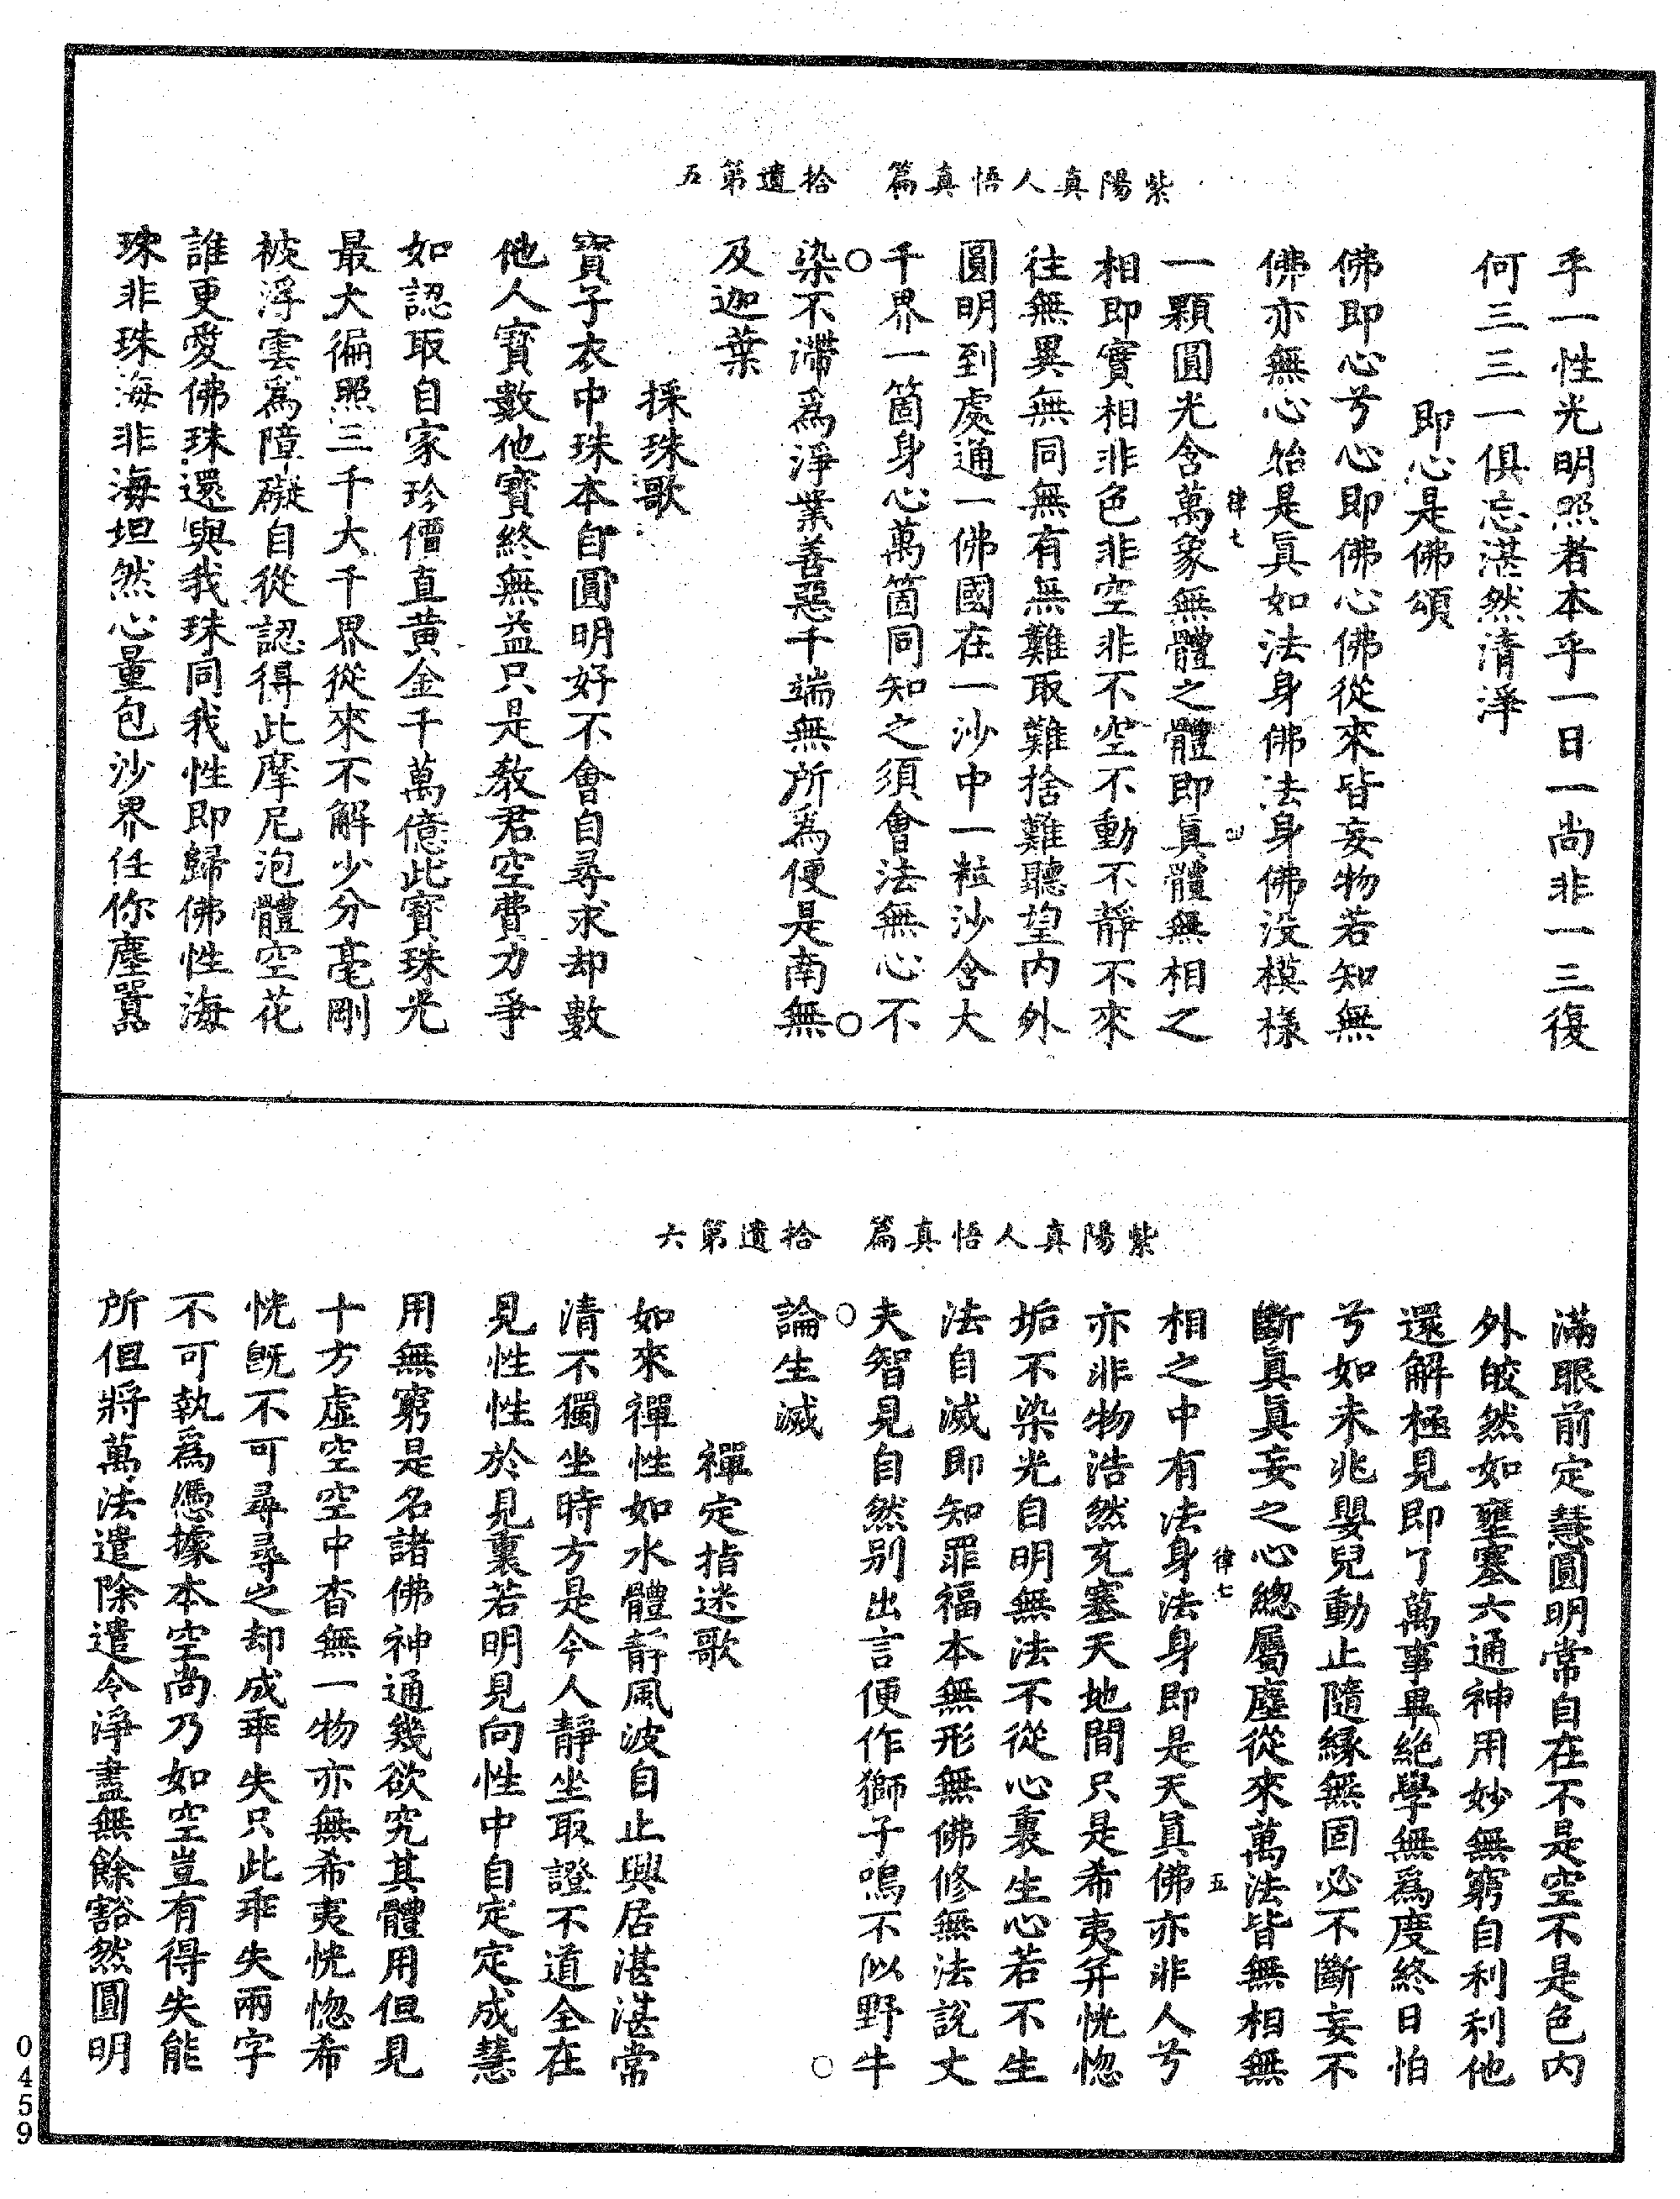 紫陽真人悟真篇　拾遺第五
乎一性光明照者本乎一日一尚非一三復
何三三一俱忘湛然清淨
即心是佛頌
佛即心兮心即佛心佛從來皆妄物若知無
佛亦無心始是眞如法身佛法身佛没模樣
一顆圓光含萬象無體之體即眞體無相之
相即實相非色非空非不空不動不靜不來
往無異無同無有無難取難捨難聽望内外
圓明到處通一佛國在一沙中一粒沙含大
千界一箇身心萬箇同知之須會法無心不
染不滯爲淨業善惡千端無所爲便是南無
及迦葉
採珠歌
寳子衣中珠本自圓明好不會自尋求却數
他人寳數他寳終無益只是教君空費力爭
如認取自家珍價直黄金千萬億此寳珠光
最大徧照三千大千界從來不解少分毫剛
被浮雲爲障礙自從認得此摩尼泡體空花
誰更愛佛珠還與我珠同我性即歸佛性海
珠非珠海非海坦然心量包沙界任你塵囂
律七
四
紫陽真人悟真篇　拾遺第六
滿眼前定慧圓明常自在不是空不是色内
外皎然如壅塞六通神用妙無窮自利利他
還解極見即了萬事畢絶學無爲度終日怕
兮如未兆嬰兒動止隨縁無固必不斷妄不
斷眞眞妄之心總屬塵從來萬法皆無相無
相之中有法身法身即是天眞佛亦非人兮
亦非物浩然充塞天地間只是希夷并恍惚
垢不染光自明無法不從心裏生心若不生
法自滅即知罪福本無形無佛修無法説丈
夫智見自然别出言便作獅子鳴不似野牛
論生滅
禪定指迷歌
如來禪性如水體靜風波自止興居湛湛常
清不獨坐時方是今人靜坐取證不道全在
見性性於見裏若明見向性中自定定成慧
用無窮是名諸佛神通幾欲究其體用但見
十方虚空空中杳無一物亦無希夷恍惚希
恍既不可尋尋之却成乖失只此乖失兩字
不可執爲憑據本空尚乃如空豈有得失能
所但將萬法遣除遣令淨盡無餘豁然圓明
律七
五
0459